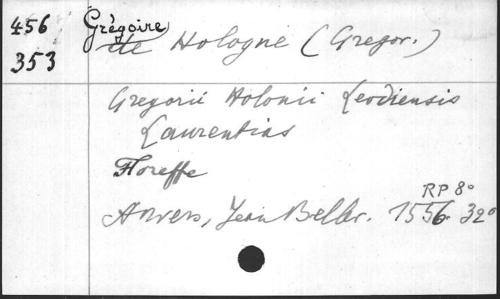 456 Grégoire
353 de Hologne (Gregor.)
Gregorii Holonii Leodiensis
Laurentias
Floreffe
RP 8°
Anvers, Jean Beller. 1556 32°